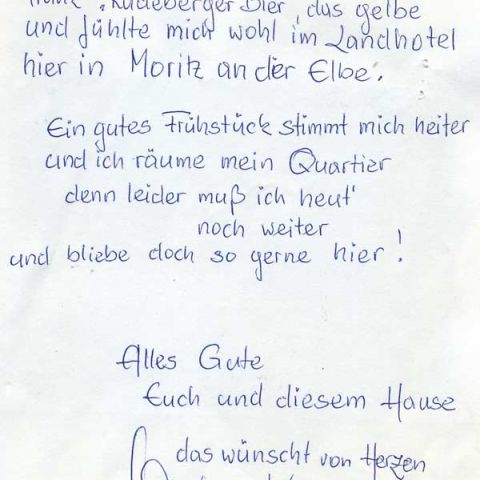 Radeberger Bier, das gelbe
und fühlte mich wohl im Landhotel
hier in Moritz an der Elbe.
Ein gutes Frühstück stimmt mich heiter
und ich räume mein Quartier
denn leider muß ich heut'
noch weiter
und bliebe doch so gerne hier!
Alles Gute
Euch und diesem Hause
das wünscht von Herzen